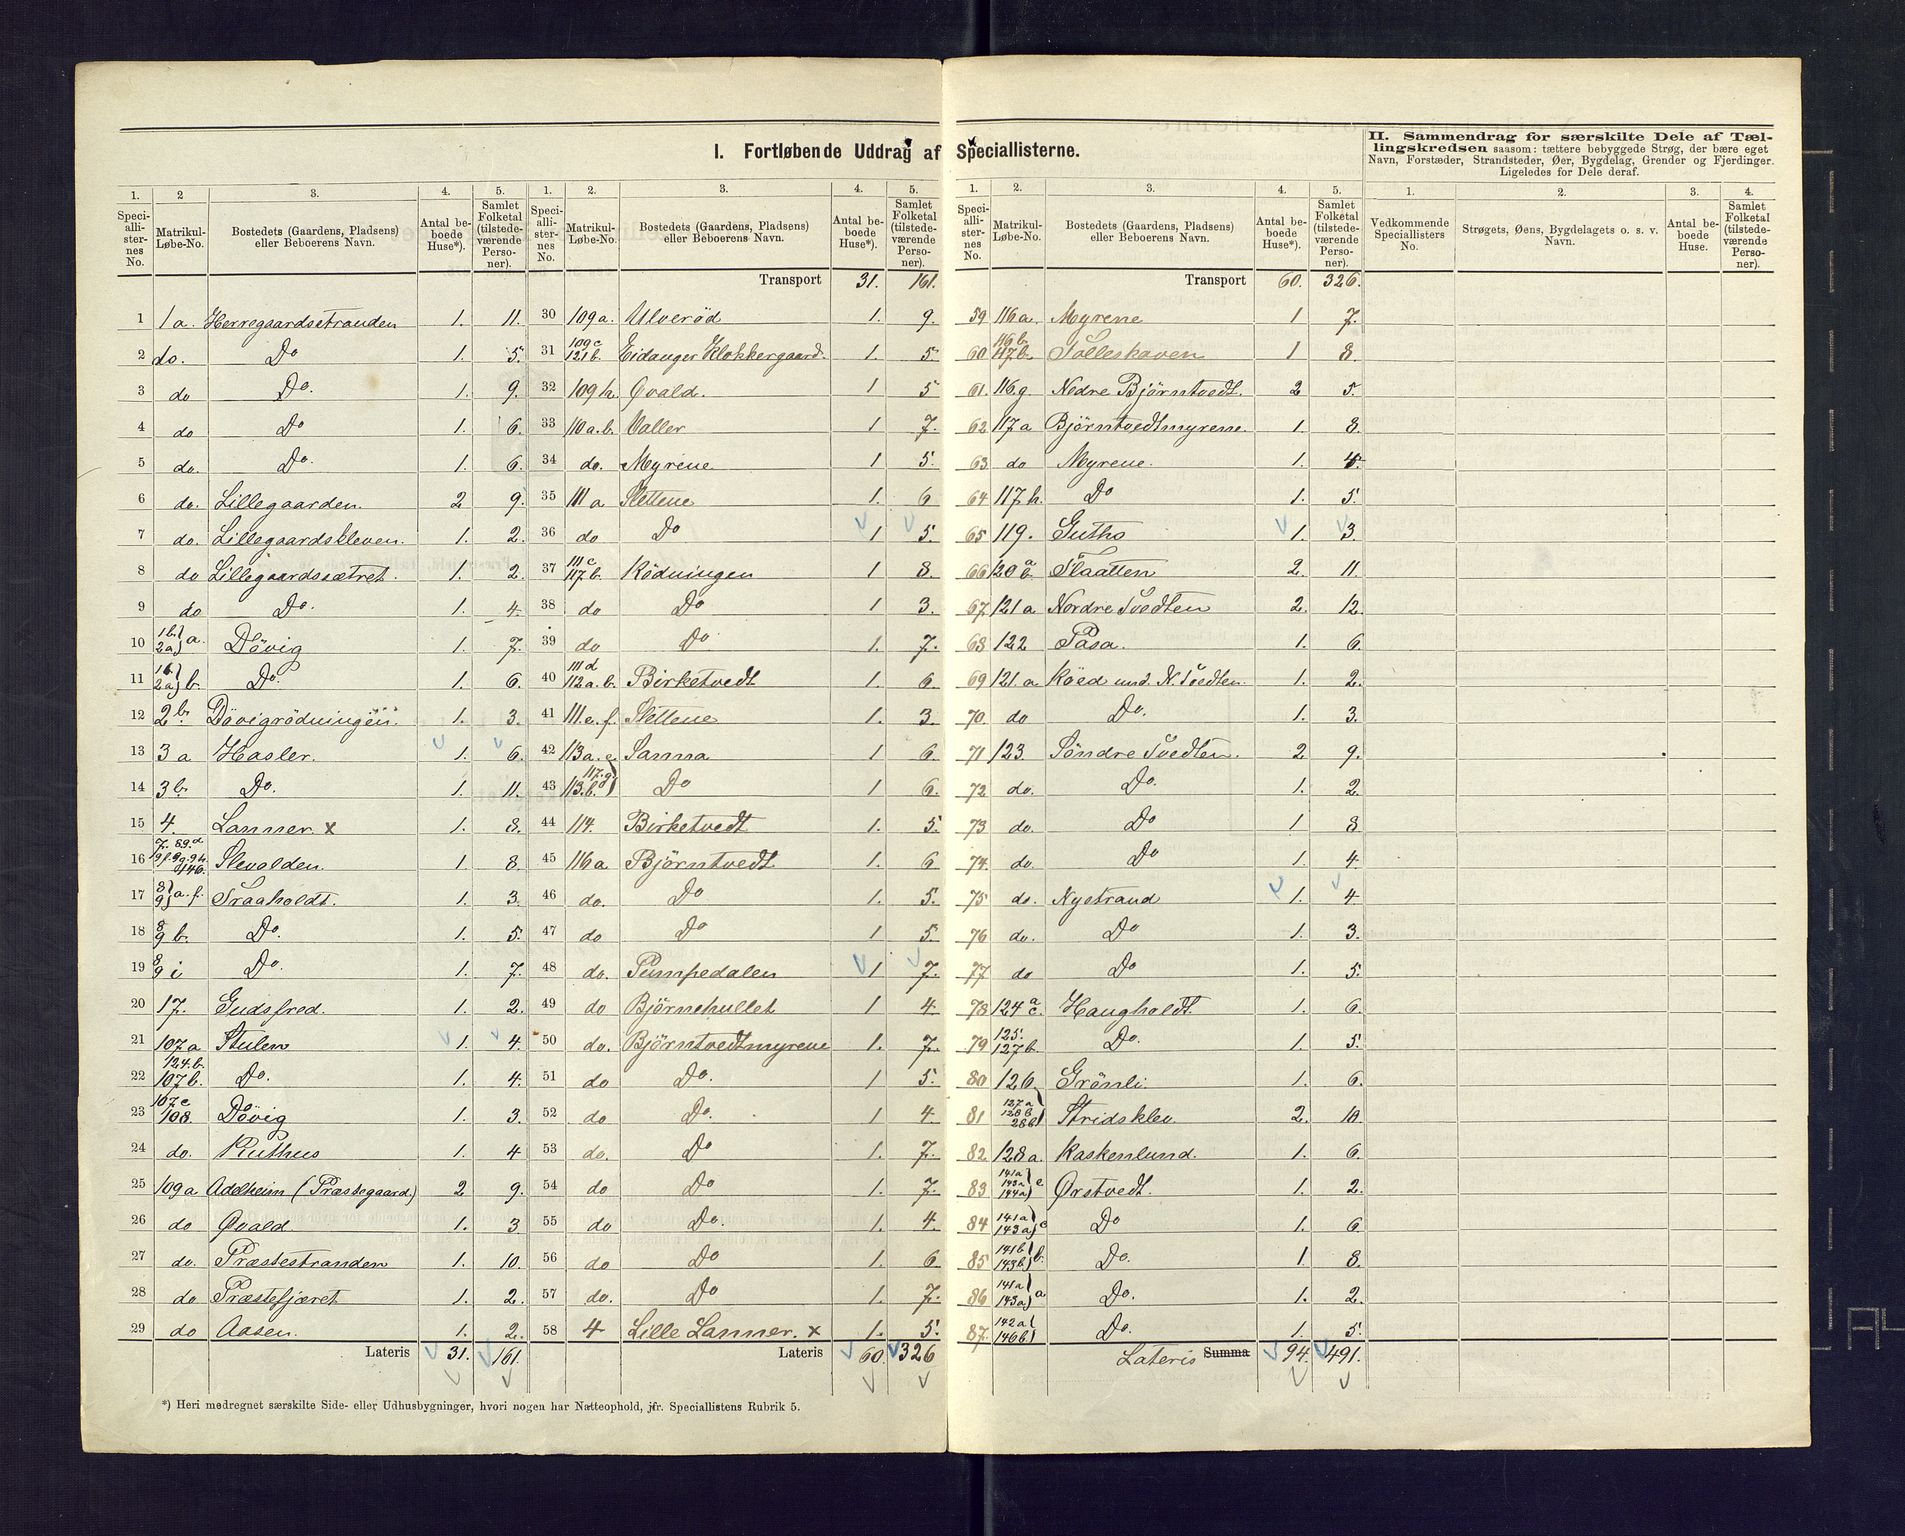 I. Fortløbende Uddrag af Speciallisterne.
II. Sammendrag for særskilte Dele af Tællingskredsen saasom: tættere bebyggede Strøg, der bære eget Navn, Forstæder, Strandsteder, Øer, Bygdelag, Grender og Fjerdinger. Ligeledes for Dele deraf.
1. 2 3. 4. 5.
Speciallisternes No. Matrikul-Løbe-No. Bostedets (Gaardens, Pladsens) eller Beboerens Navn. Antal beboede Huse*). Samlet Folketal (tilstedeværende Personer).
1 1a. Herregaardsstranden 1. 11.
2 do. Do 1. 5.
3 do Do. 1. 9.
4 do Do 1. 6.
5 do. Do. 1. 6.
6 do. Lillegaarden. 2 9.
7 do. Lillegaardskleven. 1. 2.
8 do Lillegaardssætret. 1. 2.
9 do Do. 1. 4.
10 1b. 2a) a. Døvig 1. 7.
11 1b 2a) b. Do. 1. 6.
12 2b. Døvigrødningen. 1. 3.
13 3a Hasler. 1. 6.
14 3b. Do. 1. 11.
15 4. Lanner. x 1. 8.
16 Slevolden. 1. 8.
17 8 9) a.f. Traaholdt. 1. 3.
18 8 9 b. Do. 1. 5.
19 8 9 i Do. 1. 7.
20 17. Gudsfred. 1. 2.
21 107a Stulen 1. 4.
22 124.b. 107b. Do. 1. 4.
23 107c 108. Døvig 1. 3.
24 do. Ruthus 1. 4
25 109a Adelheim (Præstegaard.) 2 9.
26 do Qvald 1. 3
27 do. Præstestranden 1. 10.
28 do Præstefjæret 1. 2.
29 do Aasen. 1. 2.
Lateris 31. 161.
1. 2. 3. 4. 5.
Speciallisternes No. Matrikul-Løbe-No. Bostedets (Gaardens, Pladsens) eller Beboerens Navn. Antal beboede Huse*). Samlet Folketal (tilstedeværende Personer).
Transport 31. 161.
30 109a. Ulverød 1. 9.
31 109c 121b. Eidanger Klokkergaard. 1. 5
32 109h. Qvald. 1 5
33 110a.b. Valler 1 7.
34 do. Myrene 1 5.
35 111a Slettene 1. 6
36 do Do 1 5.
37 111c 117b. Rødningen 1 8.
38 do Do 1 3.
39 do Do 1. 7.
40 111d 112a.b. Birketvedt 1. 6
41 111.e.f. Slettene 1. 3.
42 113a.c Sanna 1 6
43 117.g 113.b. Do 1 6.
44 114. Birketvedt 1. 5.
45 116a Bjørntvedt 1. 6
46 do. Do 1. 5.
47 do Do 1 5.
48 do. Pumpedalen 1 7.
49 do Bjørnehullet 1 4.
50 do. Bjørntvedtmyrene 1. 7.
51 do Do. 1 5.
52 do Do. 1 4.
53 do. Do 1. 7.
54 do Do 1. 7.
55 do Do. 1. 4.
56 do Do 1. 6
57 do. Do 1. 7.
58 4 Lille Lanner. x 1. 5.
Lateris 60. 326
1. 2. 3. 4. 5.
Speciallisternes No. Matrikul-Løbe-No. Bostedets (Gaardens, Pladsens) eller Beboerens Navn. Antal beboede Huse*). Samlet Folketal (tilstedeværende Personer).
Transport 60. 326.
59 116a. Myrene 1 7.
60 116b. 117b. Tolleskoven 1 8
61. 116g. Nedre Bjørntvedt. 2 5.
62 117a Bjørntvedtmyrene. 1. 8.
63 do Myrene. 1. 5.
64 117h. Do 1. 5.
65 119. Gutho 1. 3.
66 120 a b. Flaatten 2. 11.
67. 121a Nordre Tvedten 2. 12.
68 122 Pasa. 1. 6
69 121.a Røed und. N. Tvedten. 1. 2.
70. do Do. 1. 3.
71 123. Søndre Tvedten. 2 9.
72 do. Do. 1. 2
73 do. Do 1 8
74. do. Do 1. 4
75 do. Nystrand 1. 4
76 do. Do 1. 3.
77 do Do 1. 5.
78 124 a c. Haugholdt. 1. 6
79 125. 127b. Do. 1. 5.
80 126 Grønli. 1. 6.
81 127a 128b Stridsklev. 2. 10
82 128a. Kaskenlund. 1. 6.
83 141a 143a 144a) e Ørstvedt. 1. 2.
84 141a 143a) c Do 1. 6
85 141b 143b.) b. Do. 1 8
86 141a 143a) a Do. 1. 2.
87. 142a 146b Do. 1. 5.
Lateris Summa 94. 491.
1. 2. 3. 4.
Vedkommende Speciallisters No. Strøgets, Øens, Bygdelagets o. s. v. Navn. Antal beboede Huse. Samlet Folketal (tilstedeværende Personer).
*) Heri medregnet særskilte Side- eller Udhusbygninger, hvori nogen har Natteophold, jfr. Speciallistens Rubrik 5.